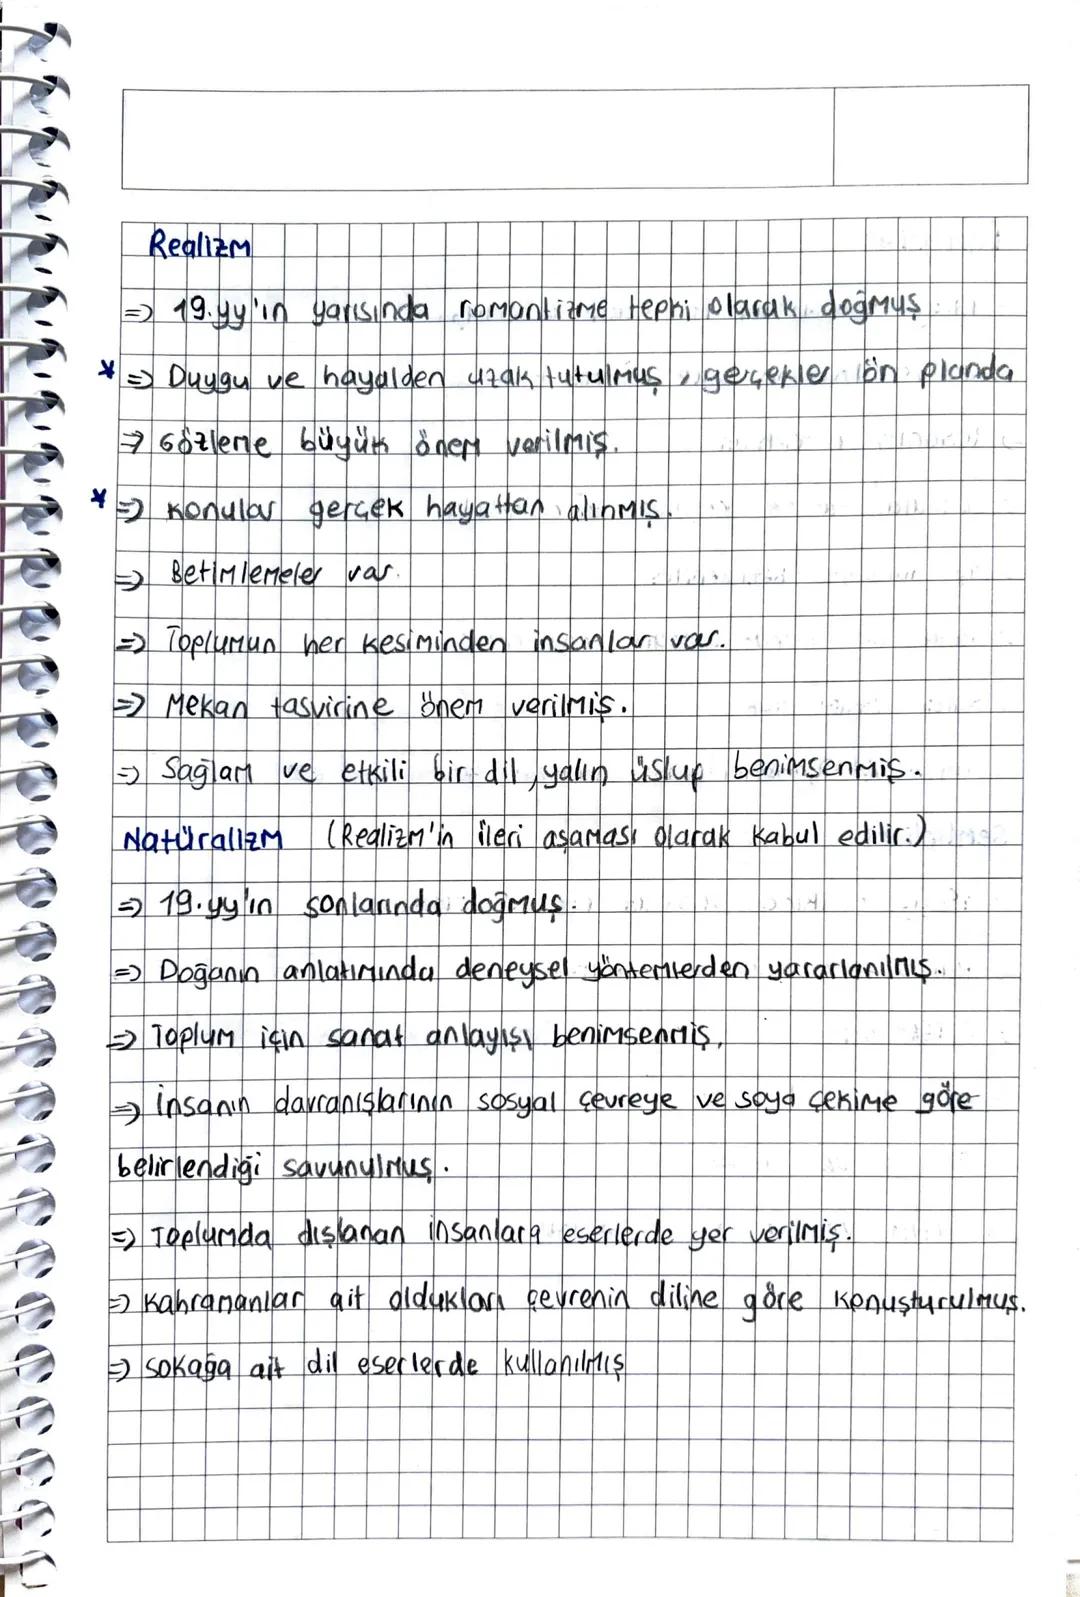 Realizm
⇒ 19.yy'ın yarısında romantizme tepki olarak doğmuş
* ⇒ Duygu ve hayalden uzak tutulmuş, gerçekler ön planda
⇒ Gözleme büyük önem verilmiş.
* ⇒ Konular gerçek hayattan alınmış.
⇒ Betimlemeler var.
⇒ Toplumun her kesiminden insanlar var.
⇒ Mekan tasvirine önem verilmiş.
⇒ Sağlam ve etkili bir dil, yalın üslup benimsenmiş.
Natüralizm (Realizm'in ileri aşaması olarak kabul edilir.)
⇒ 19.yy'ın sonlarında doğmuş.
⇒ Doğanın anlatımında deneysel yöntemlerden yararlanılmış.
⇒ Toplum için sanat anlayışı benimsenmiş.
⇒ İnsanın davranışlarının sosyal çevreye ve soya çekime göre
belirlendiği savunulmuş.
⇒ Toplumda dışlanan insanlara eserlerde yer verilmiş.
⇒ Kahramanlar ait oldukları çevrenin diline göre konuşturulmuş.
⇒ Sokağa ait dil eserlerde kullanılmış